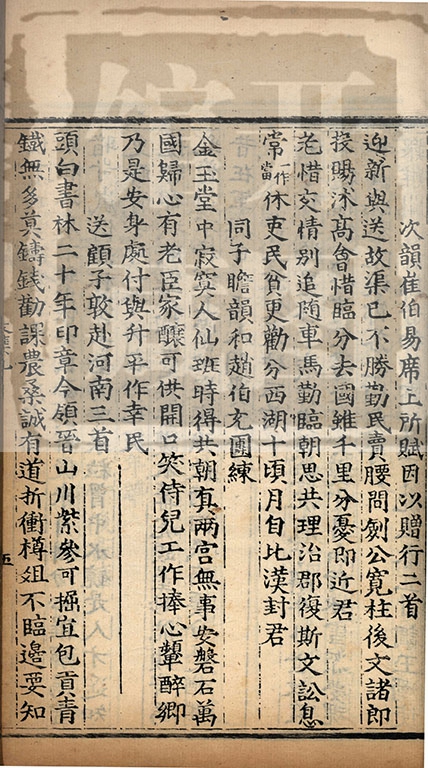 次韻崔伯易席上所賦因以贈行二首
迎新與送故渠已不勝勤民賣腰間劍公寛柱後文諸郎
投賜沐高會惜臨分去國雖千里分憂即近君
老惜交情別追隨車馬勤臨朝思共理治郡復斯文訟息
常一作當休吏民貧更勸分西湖十頃月自比漢封君
同子瞻韻和趙伯充團練
金玉堂中寂寞人仙班時得共朝真兩宫無事安磐石萬
國歸心有老臣家釀可供開口笑侍兒工作捧心顰醉鄉
乃是安身處付與升平作幸民
送顧子敦赴河南三首
頭白書林二十年印章今領晉山川紫參可掘宜包貢青
鐵無多莫鑄錢勸課農桑誠有道折衝樽俎不臨邊要知
五